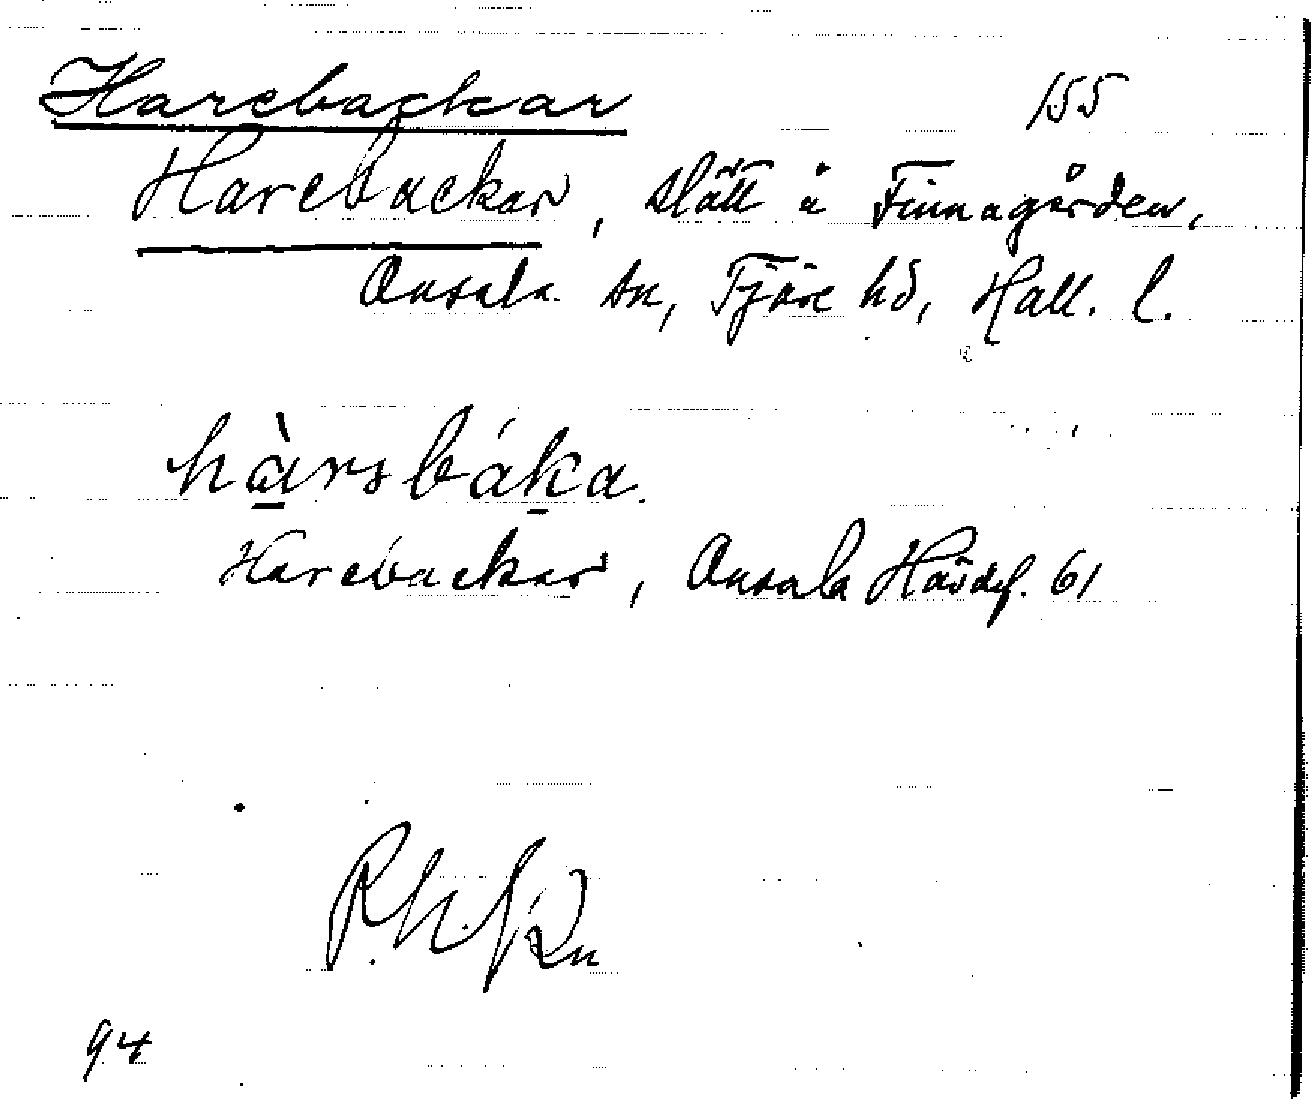 Harebackar 155
Harebackar, slätt å Finnagården,
Onsala sn, Fjäre hd, Hall. l.
hàrsbáka.
Harebackar, Onsala Hävdf. 61
94